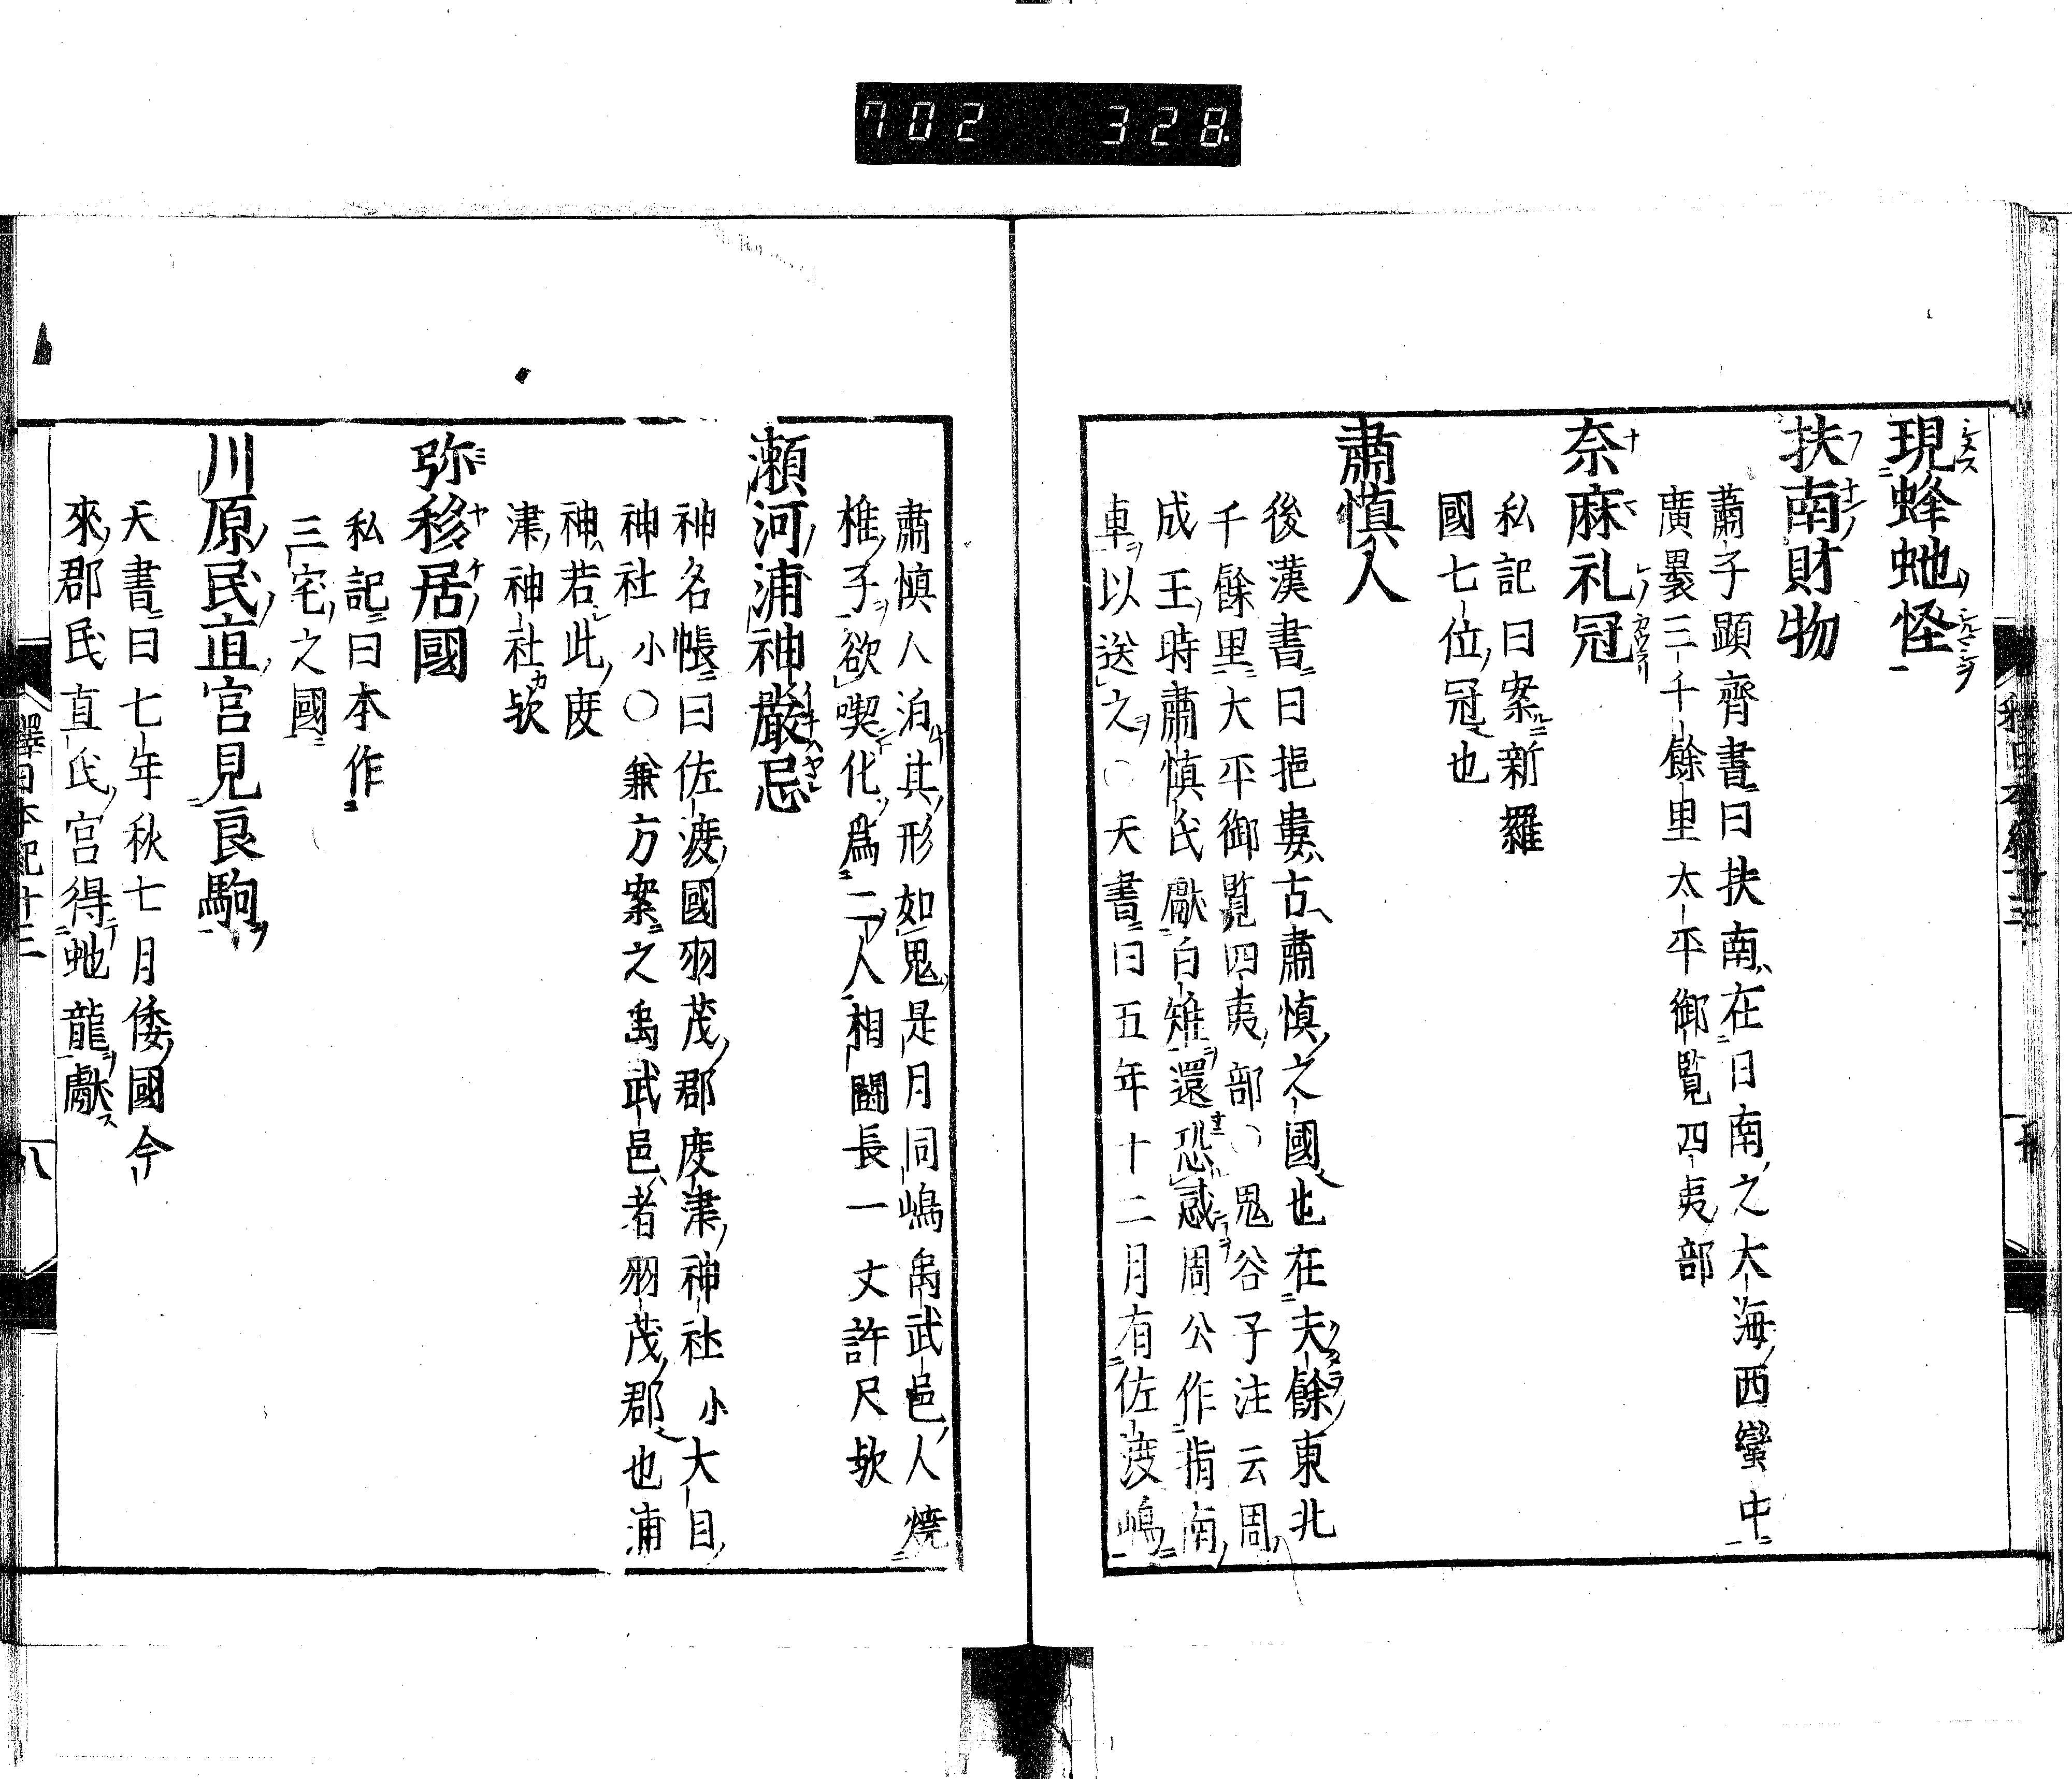 702 328
現蜂虵怪
扶南財物
蕭子顯齊書曰扶南在日南之大海西蠻中
廣袤三千餘里太平御覧四夷部
奈麻礼冠
私記曰案新羅
國七位冠也
肅慎人
後漢書曰挹婁古肅慎之國也在夫餘東北
千餘里大平御覧四夷部○鬼谷子注云周
成王時肅慎氏獻白雉還恐惑周公作指南
車以送之○天書曰五年十二月有佐渡嶋
肅慎人泊其形如鬼是月同嶋禹武邑人燒
椎子欲喫化為二人相闘長一丈許尺欤
瀬河浦神嚴忌
神名帳曰佐渡國羽茂郡度津神社小大目
神社小○兼方案之禹武邑者羽茂郡也浦
神若此度
津神社欤
弥移居國
私記曰本作
三宅之國
川原民直宮見良駒
天書曰七年秋七月倭國今
來郡民直氏宮得虵龍獻
釋日本紀十三
八